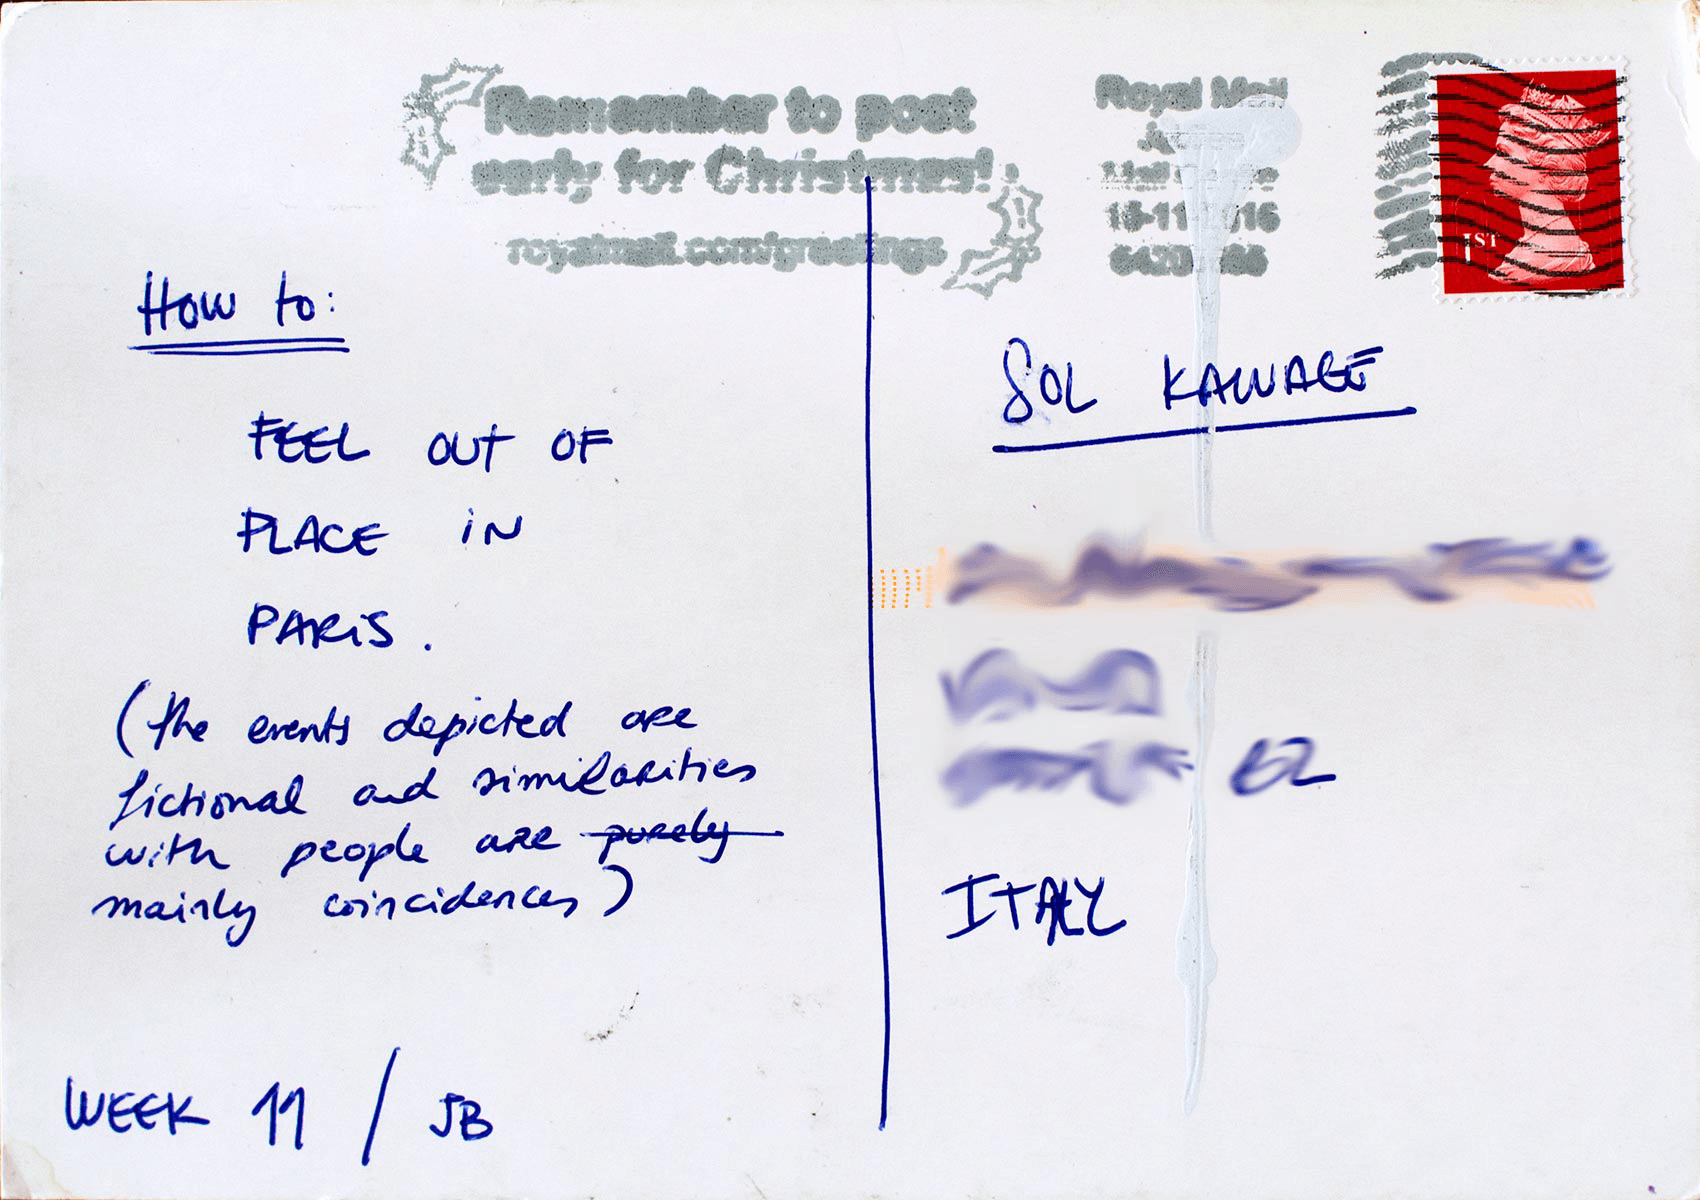 Remember to post
early for Christmas!
royalmail.com/greetings
Royal Mail
1ST
How to:
FEEL OUT OF
PLACE IN
PARIS.
(the events depicted are
fictional and similarities
with people are purely
mainly coincidences)
WEEK 11 / JB
SOL KAWAGE
BZ
ITALY